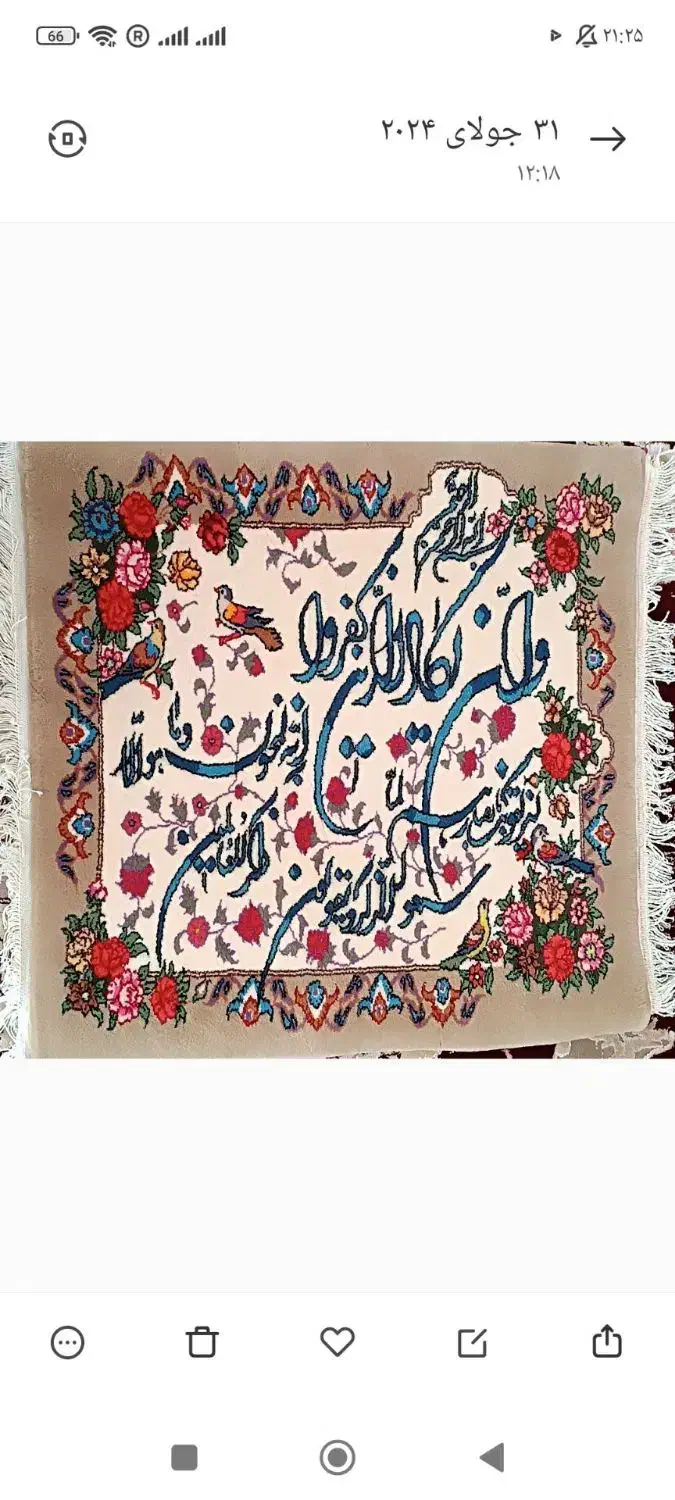 ۲۱:۲۵
66
۳۱ جولای ۲۰۲۴
۱۲:۱۸
بسم الله الرحمن الرحیم
وان یکاد الذین کفروا
لیزلقونک بابصارهم لما
سمعوا الذکر و یقولون
انه لمجنون و ما هو الا
ذکر للعالمین